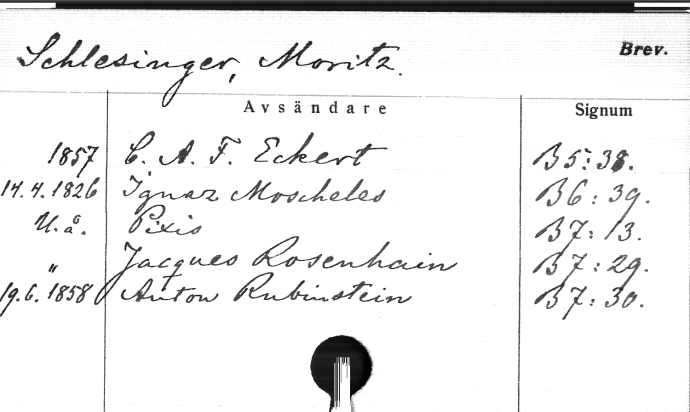 Schlesinger, Moritz.
Brev.
Avsändare Signum
1857 C. A. F. Eckert B5:38.
14.4.1826 Ignaz Moscheles B6:39.
U.å. Pixis B7:13.
" Jacques Rosenhain B7:29.
19.6.1858 Anton Rubinstein B7:30.